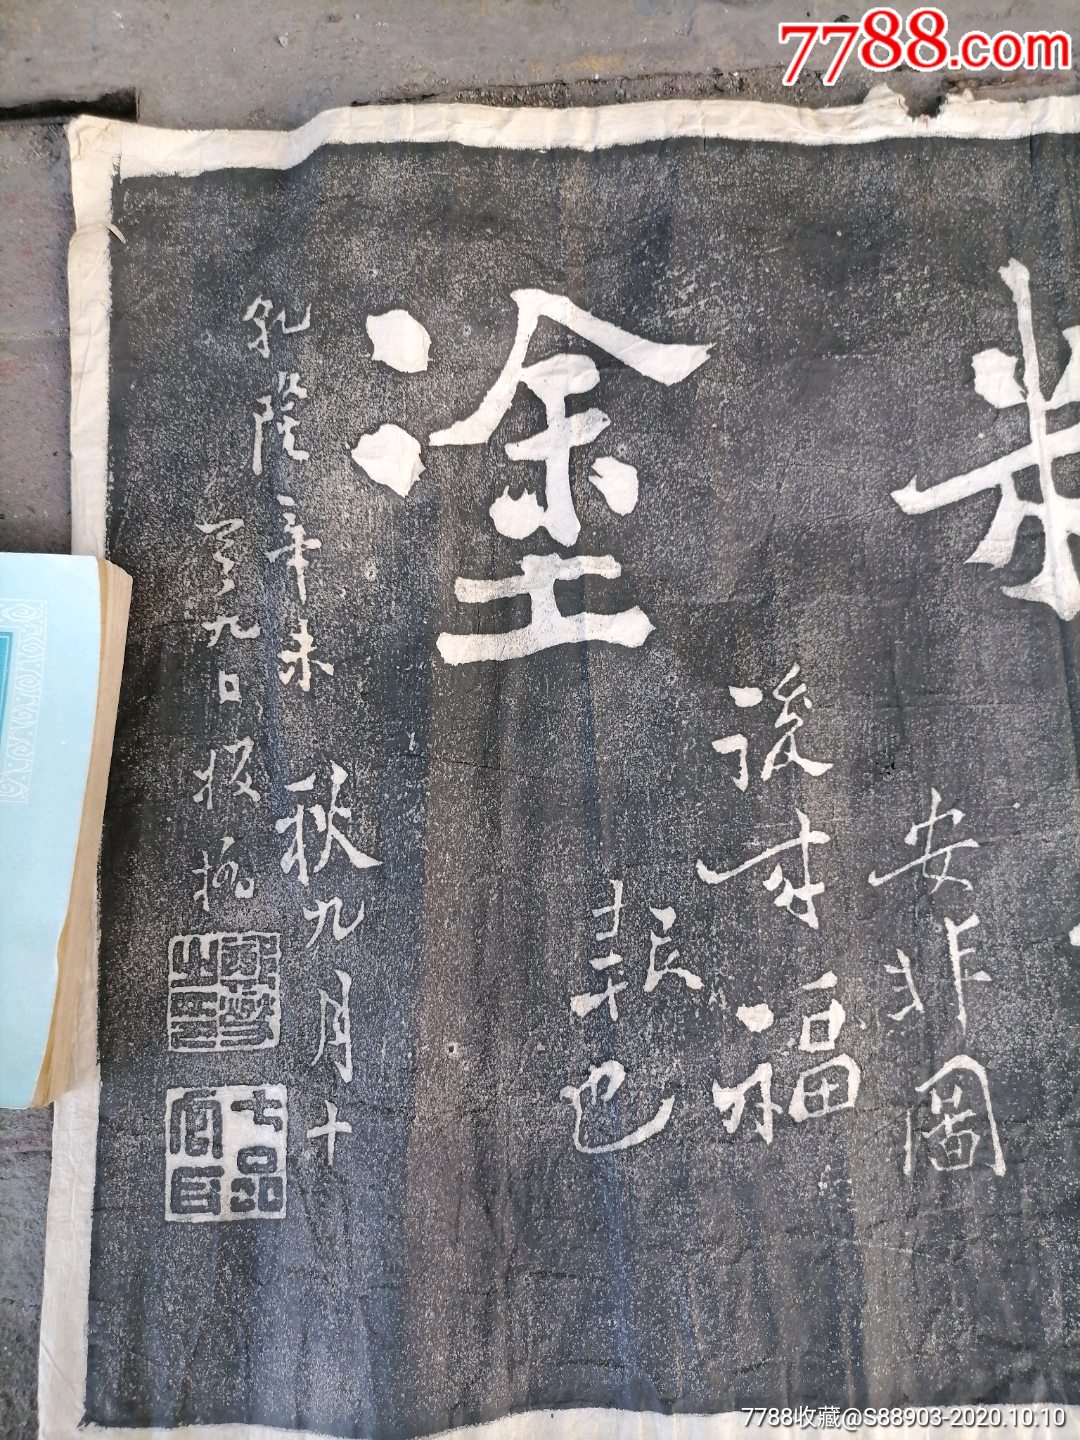 7788.com
塗
安非圖
後来福
報也
乾隆辛未秋九月十
有九日板橋
鄭燮之印
七品官耳
7788收藏@S88903-2020.10.10